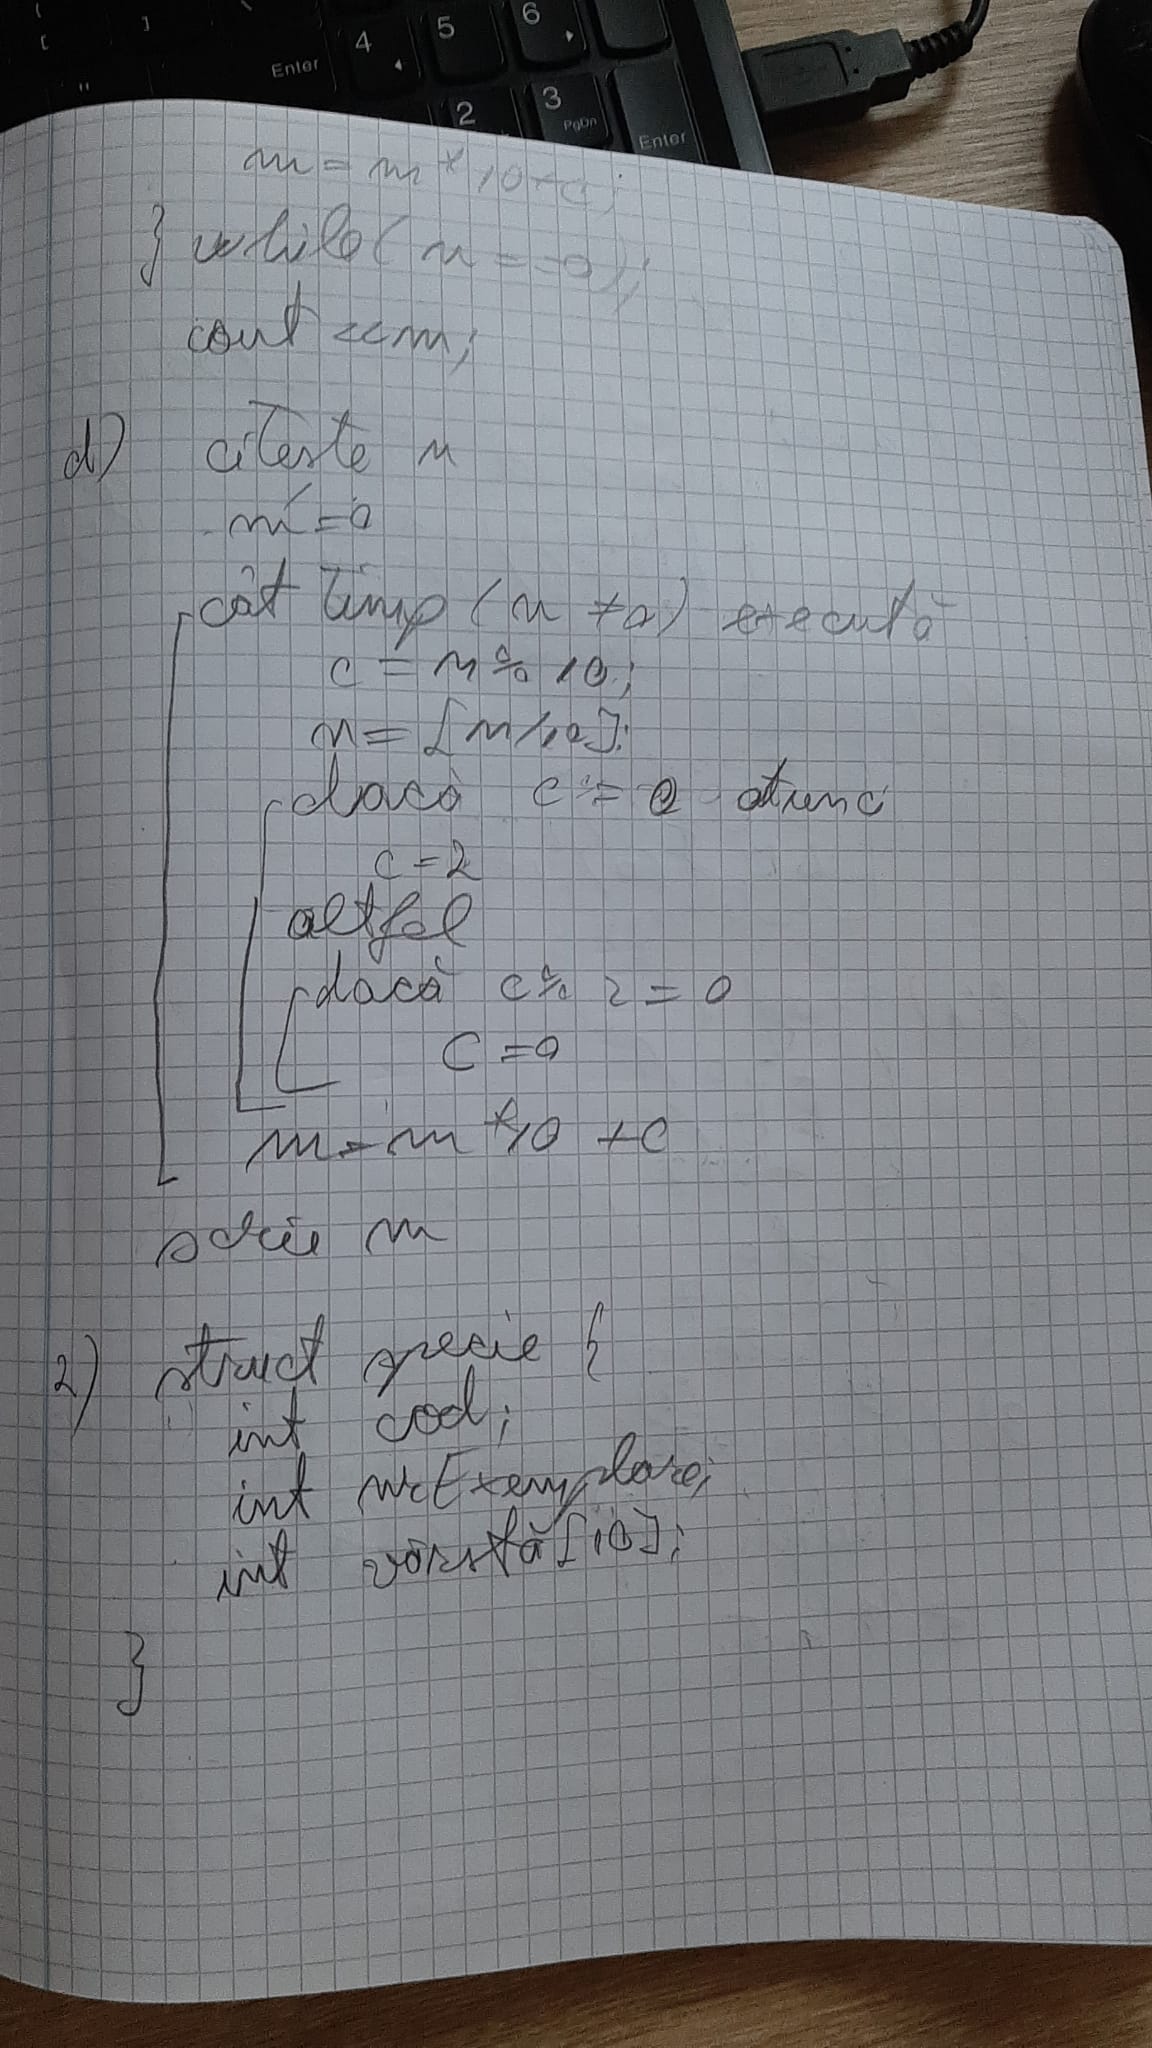 4
5
6
Enter
2
3
PgDn
Enter
m = m * 10 + c;
} while (n == 0);
cout << m;
d) citeste n
m = 0
cât timp (n ≠ 0) execută
c = n % 10;
n = [n/10];
dacă c = 0 atunc
c = 2
altfel
dacă c % 2 = 0
c = 0
m = m * 10 + c
scrie m
2) struct specie {
int cod;
int nrExemplare;
int vârstă[10];
}